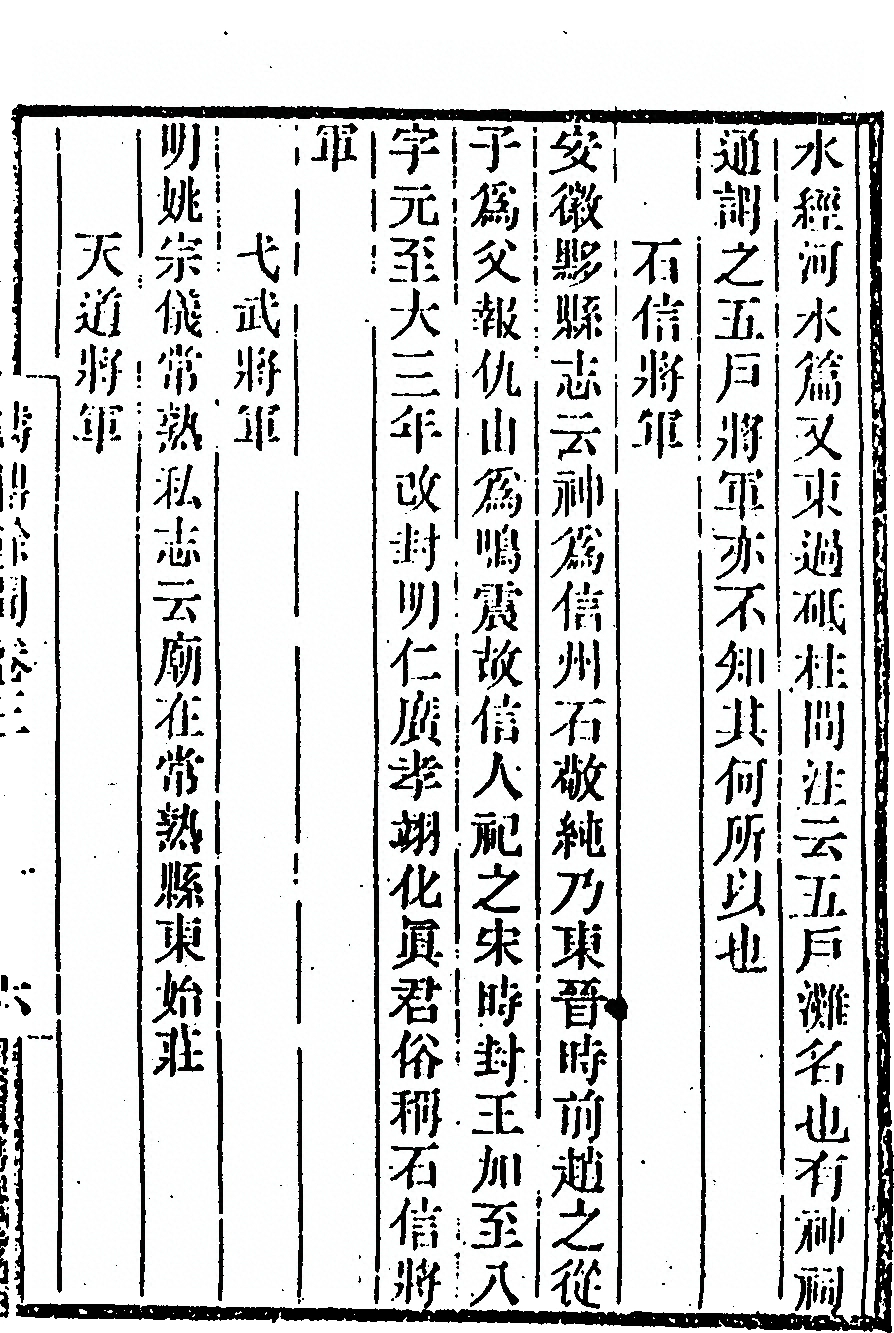 水經河水篇又東過砥柱間注云五戶灘名也有神祠
通謂之五戶將軍亦不知其何所以也
石信將軍
安徽黟縣志云神爲信州石敬純乃東晉時前趙之從
子爲父報仇山爲鳴震故信人祀之宋時封王加至八
字元至大三年改封明仁廣孝翊化眞君俗稱石信將
軍
弋武將軍
明姚宗儀常熟私志云廟在常熟縣東始莊
天道將軍